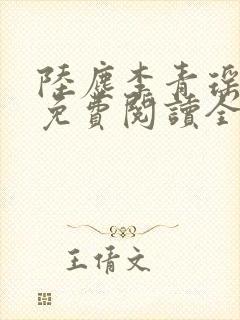 陸塵李青瑤
免費閱讀全
王倩文